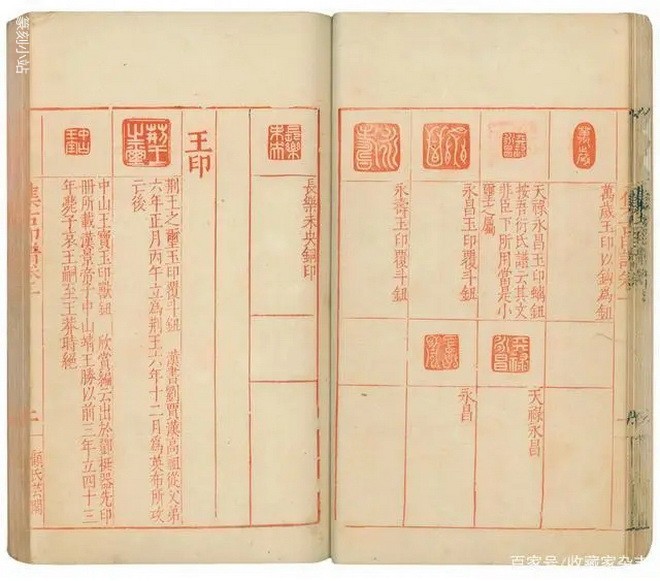 萬歲玉印以鈎為鈕
天祿永昌玉印螭鈕
按吾衍氏譜云其文
非臣下所用當是小
璽之屬
永昌玉印覆斗鈕
永壽玉印覆斗鈕
天祿永昌
天祿永昌
永昌
長樂未央
長樂未央銅印
王印
荊王之璽玉印覆斗鈕 漢書劉賈漢高祖從父弟
六年正月丙午立為荊王六年十二月為英布所攻
亡後
中山王寶玉印獸鈕 欣賞編云出於劉挺器先印
冊所載漢景帝子中山靖王勝以前三年立四十三
年薨子哀王嗣至王莽時絕
集古印譜卷
顧氏芸閣
篆刻小站
百家号/收藏家杂志